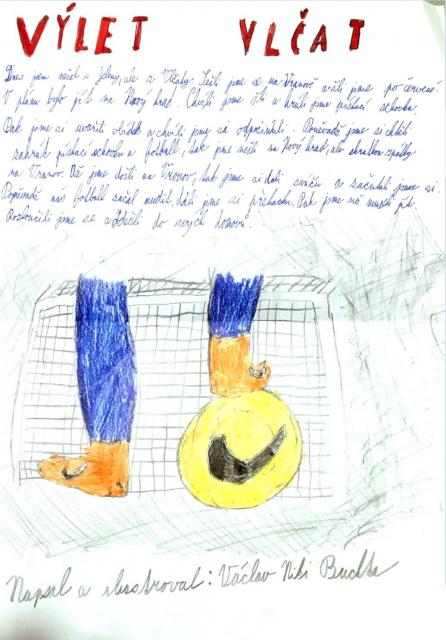 VÝLET VLČAT
Dnes jsem nešel s Jeleny, ale s Vlčaty. Sešli jsme se na Vranově a šli jsme po červené.
V plánu bylo jít na Nový hrad. Chvíli jsme šli a hráli jsme pískací schovku.
Pak jsme si uvařili oběd a chvíli jsme si odpočinuli. Poněvadž jsme si chtěli
zahrát pískací schovku a fotball, tak jsme nešli na Nový hrad, ale zkratkou zpátky
na Vranov. Už jsme došli na Vranov, tak jsme si dali svačinu a začali jsme
Poněvadž nás fotball začal nudit, dali jsme si přehazku. Pak jsme už museli jít.
Rozloučili jsme se a odešli do svých domovů.
Napsal a ilustroval: Václav Niki Buchta